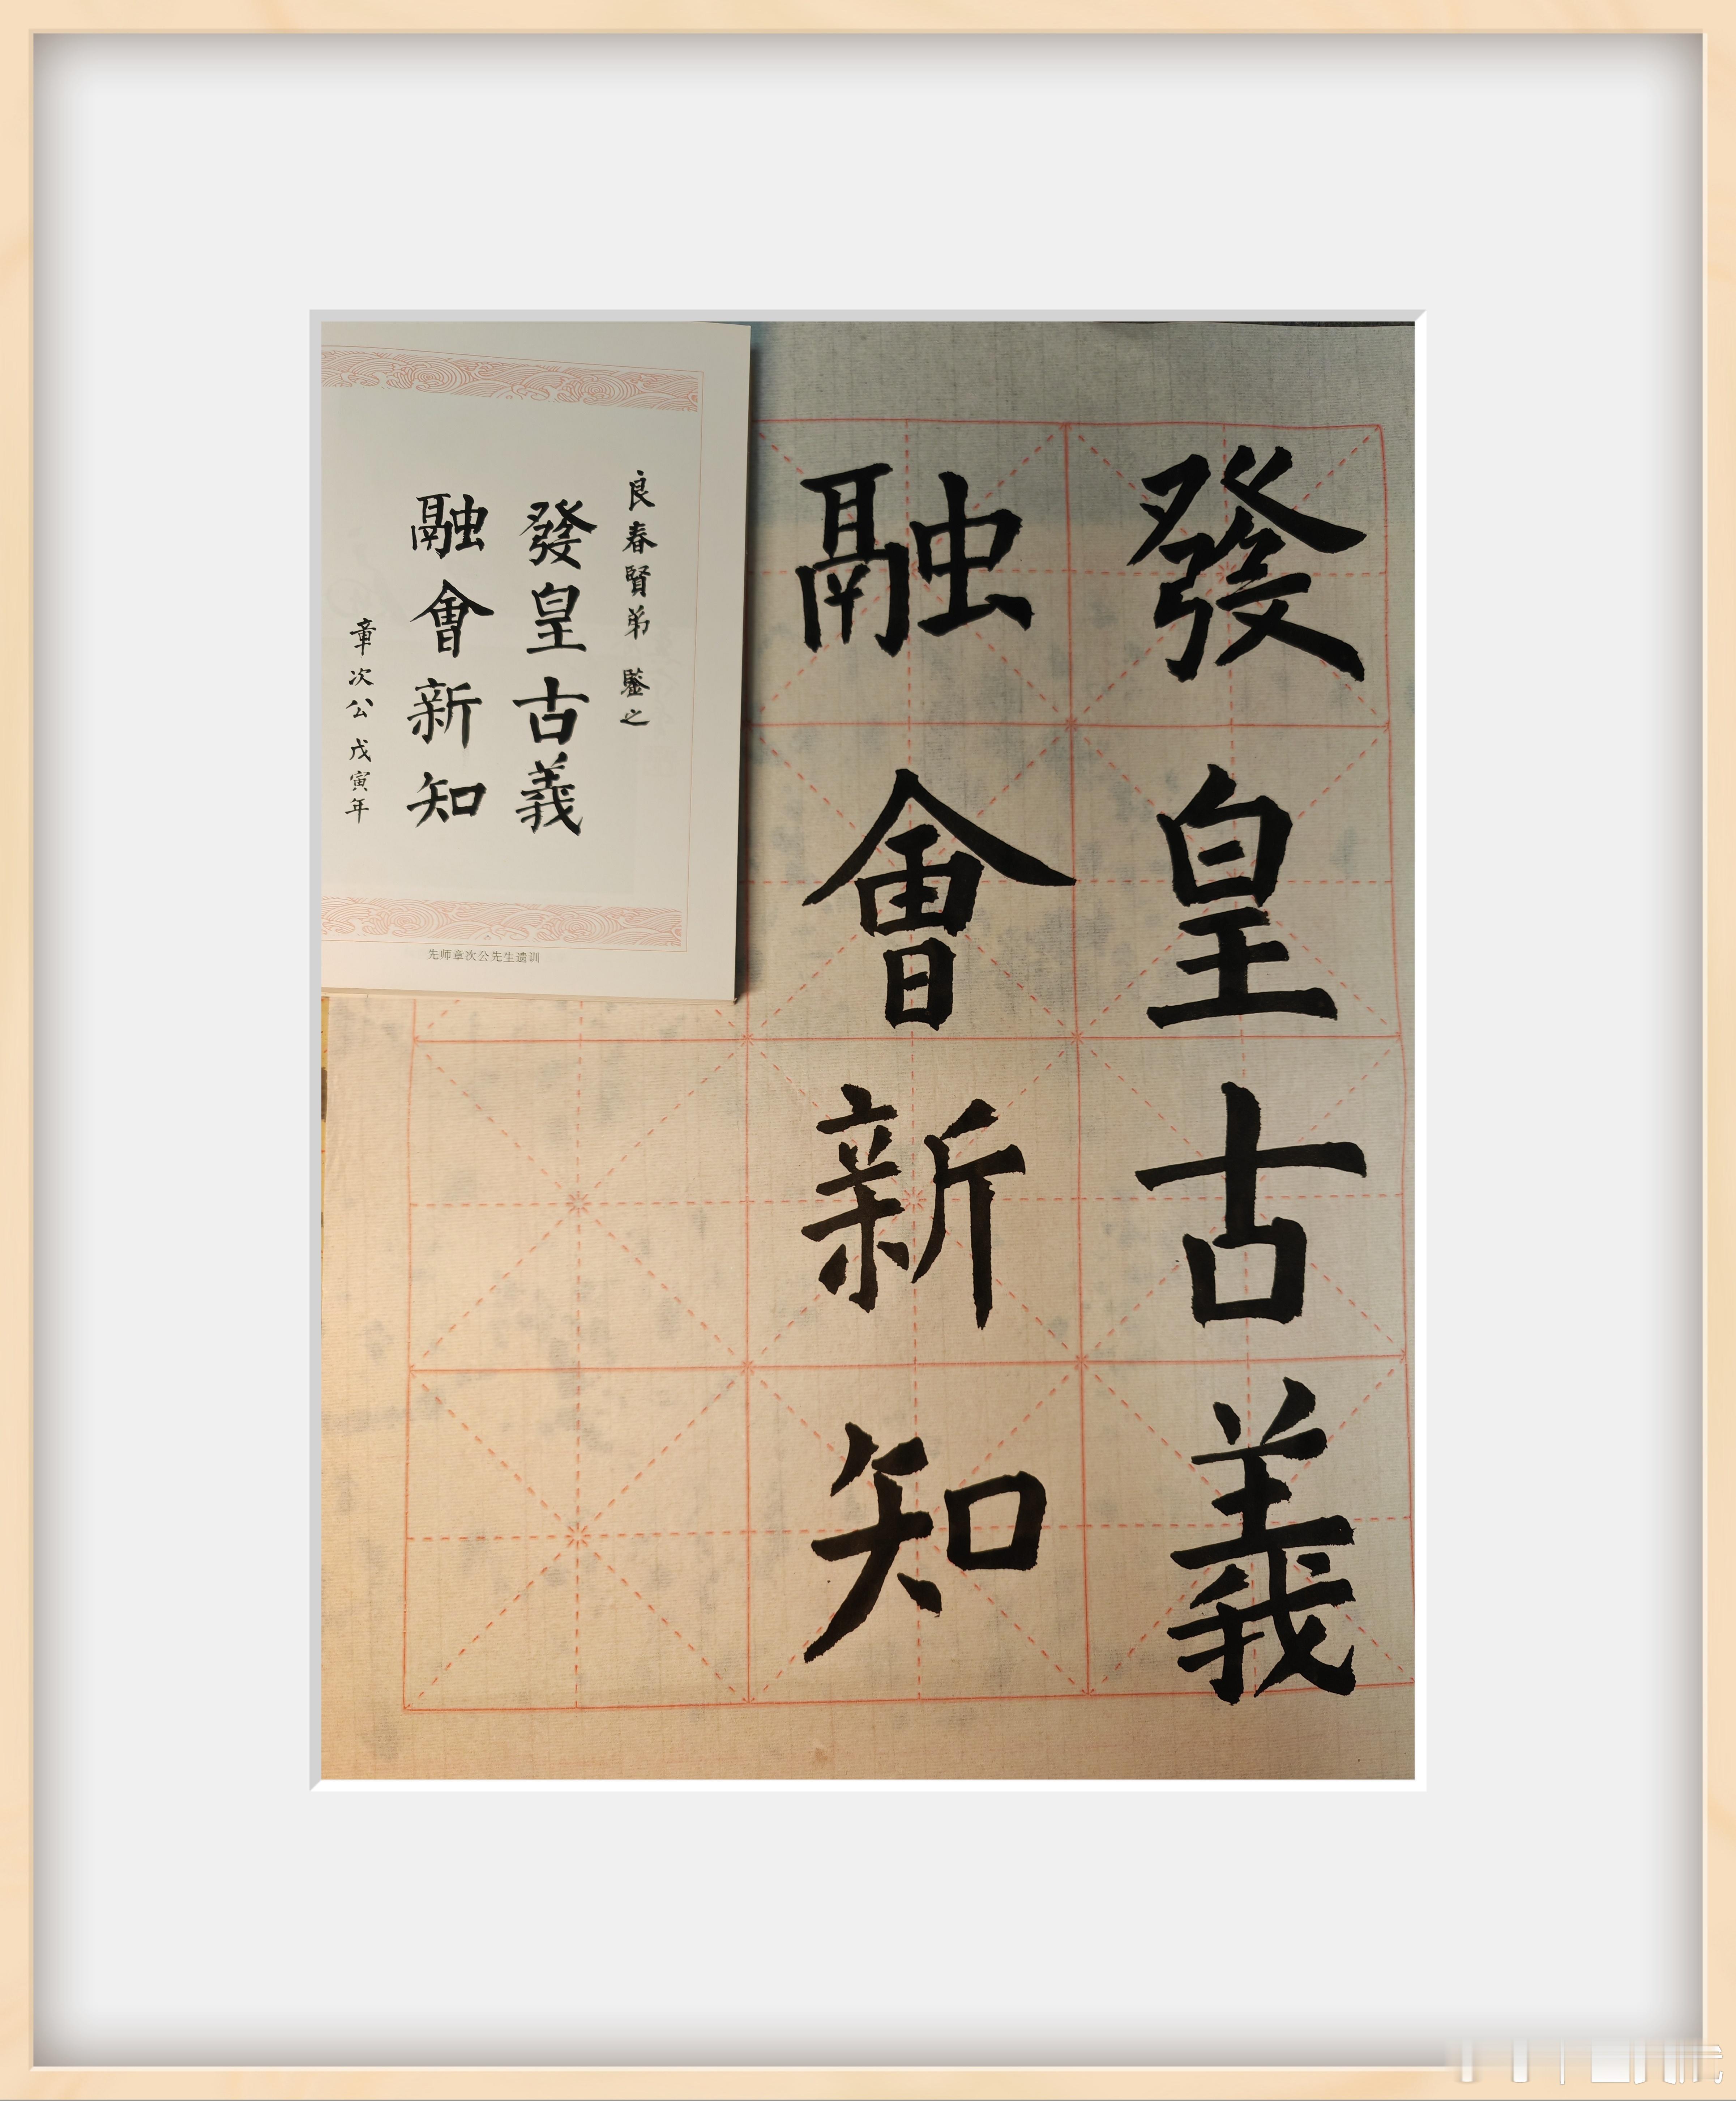 發皇古義
融會新知
良春賢弟 鑒之
發皇古義
融會新知
章次公 戊寅年
先师章次公先生遗训